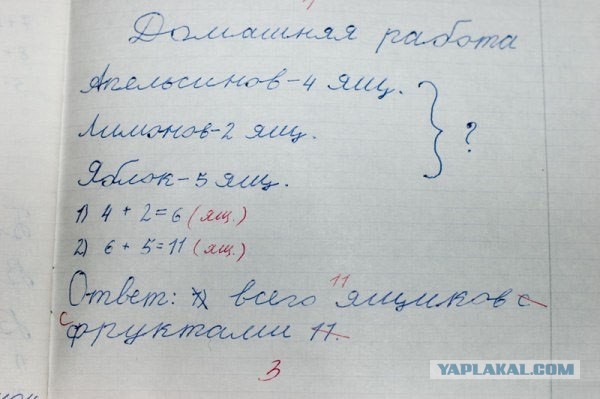 Домашняя работа
Апельсинов - 4 ящ.
Лимонов - 2 ящ.
?
Яблок - 5 ящ.
1) 4 + 2 = 6 (ящ.)
2) 6 + 5 = 11 (ящ.)
11
Ответ: всего ящиков с
с фруктами 11.
3
YAPLAKAL.COM